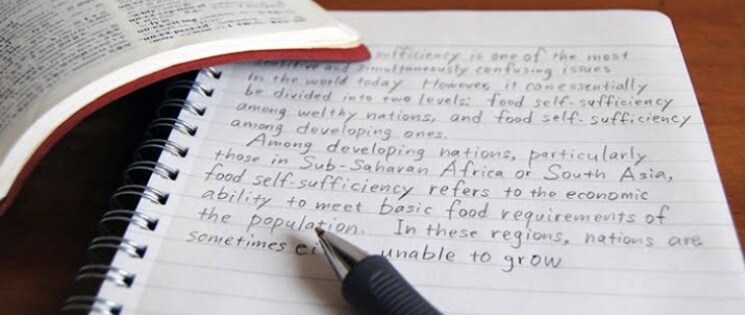 sufficiency is one of the most
sensitive and simultaneously confusing issues
in the world today. However, it can essentially
be divided into two levels: food self-sufficiency
among welthy nations, and food self-sufficiency
among developing ones.
Among developing nations, particularly
those in Sub-Saharan Africa or South Asia,
food self-sufficiency refers to the economic
ability to meet basic food requirements of
the population. In these regions, nations are
sometimes unable to grow